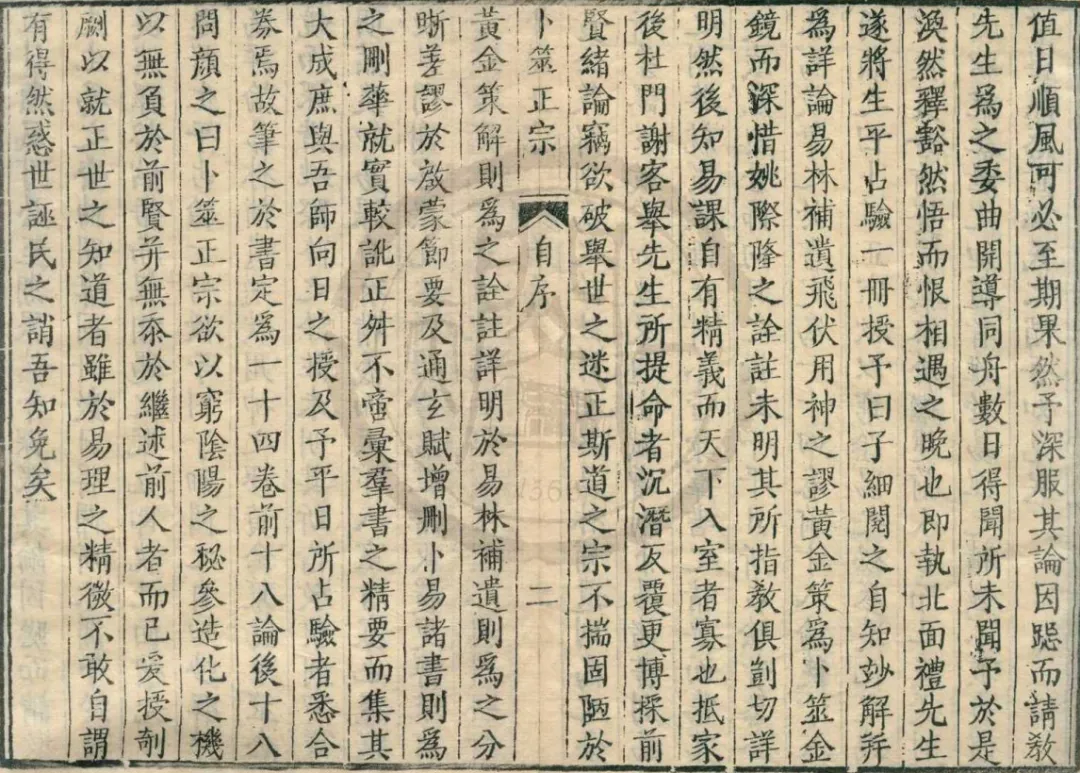 值日順風可必至期果然予深服其論因跽而請教
先生爲之委曲開導同舟數日得聞所未聞予於是
渙然釋豁然悟而恨相遇之晚也即執北面禮先生
遂將生平占驗一冊授予曰子細閱之自知玅解幷
爲詳論易林補遺飛伏用神之謬黃金策爲卜筮金
鏡而深惜姚際隆之詮註未明其所指敎俱剴切詳
明然後知易課自有精義而天下入室者寡也抵家
後杜門謝客舉先生所提命者沉潛反覆更博採前
賢緒論竊欲破舉世之迷正斯道之宗不揣固陋於
卜筮正宗 自序 二
黃金策解則爲之詮註詳明於易林補遺則爲之分
晰差謬於啟蒙節要及通玄賦增刪卜易諸書則爲
之刪華就實較訛正舛不啻彙羣書之精要而集其
大成庶與吾師向日之授及予平日所占驗者悉合
劵焉故筆之於書定爲一十四卷前十八論後十八
問顏之曰卜筮正宗欲以窮陰陽之秘參造化之機
以無負於前賢幷無忝於繼述前人者而已爰授剞
劂以就正世之知道者雖於易理之精微不敢自謂
有得然惑世誣民之誚吾知免矣